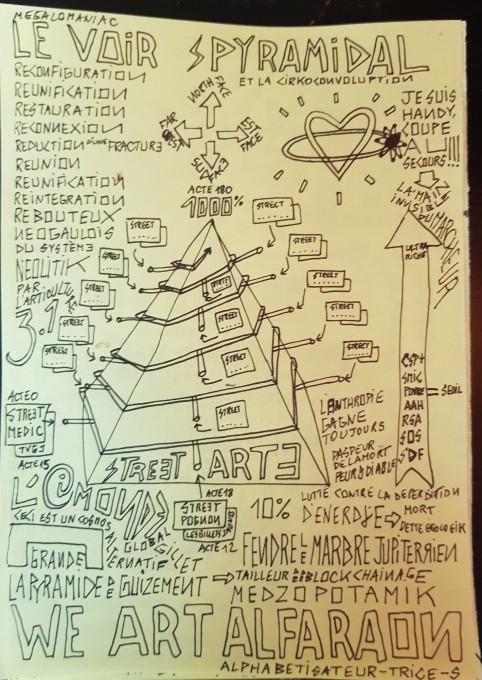 MEGALOMANIAC
LE VOIR SPYRAMIDAL
ET LA CIRKOCONVOLUPTION
RECONFIGURATION
REUNIFICATION
RESTAURATION
RECONNEXION
REDUCTION D'UNE FRACTURE
REUNION
REUNIFICATION
REINTEGRATION
REBOUTEUX
NEOGAULOIS
DU SYSTÈME
NEOLITIK
PAR
L'ARTICULTU
3.1
NORTH FACE
FAR
EST
FACE
ACTE 180
1000%
JE SUIS
HANDY,
COUPE
AU
SECOURS!!!
LA MAIN
INVISIBLE
DU MARCHE
ULTRA
RICHE
CSP+
SMIC
AAH
RSA
SDS
SDF
SEUIL
STREET
STREET
STREET
STREET
STREET
STREET
STREET
STREET
STREET
STREET
STREET
STREET
STREET
STREET
ACTE 0
STREET
MEDIC
ACTE 15
STREET ARTE
L'ENTHROPIE
GAGNE
TOUJOURS
PASPEUR
DE LA MORT
PEUR DIABLE
L'@MONDE
CECI EST UN COSMOS
GLOBAL
GILLET
ACTE 18
STREET
POGNON
ACTE 12
10%
LUTTE CONTRE LA DEPERDITION
D'ENERGIE
MORT
DETTE ECOLOGIK
GRANDE
FENDRE LE MARBRE JUPITERRIEN
LA PYRAMIDE DE GUIZEMENT
TAILLEUR DE BLOCKCHAINAGE
MEDZOPOTAMIK
WE ART ALFARAON
ALPHABETISATEUR-TRICE-S